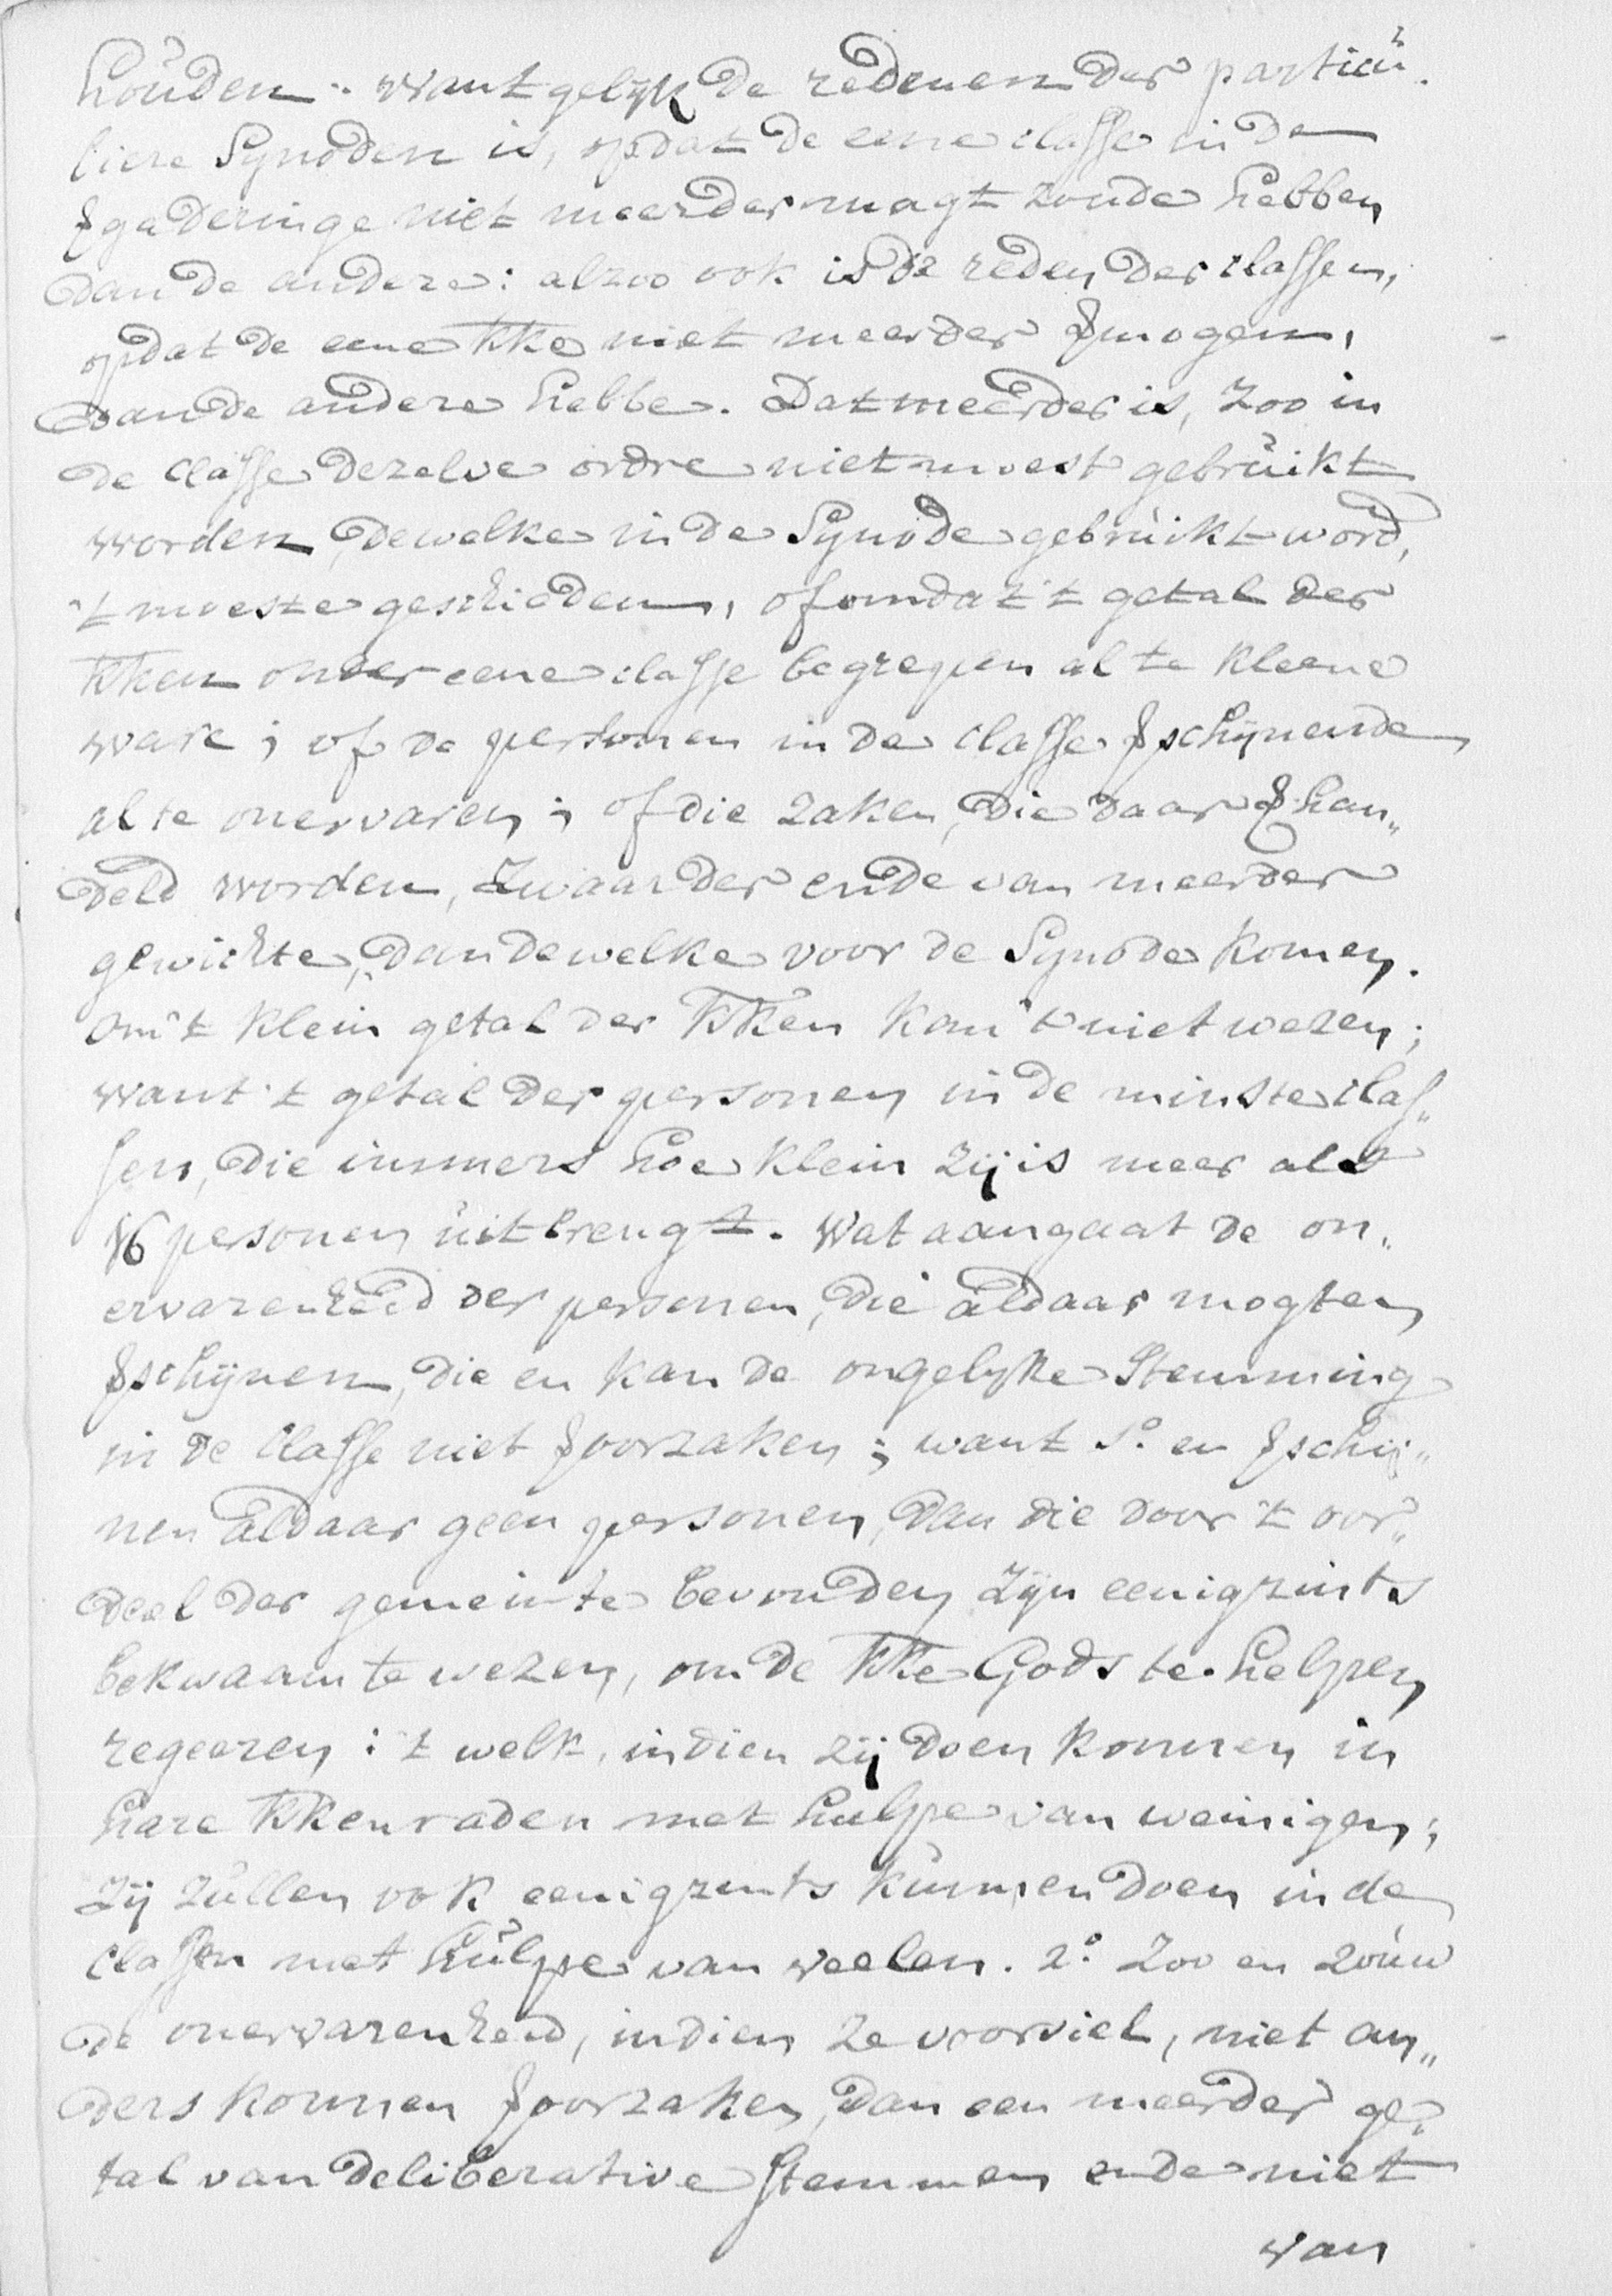 houden. Want gelijk de redenen der particu„
liere Synoden is, opdat de eene classe in de
vgaderinge niet meerder magt zoude hebben
dan de andere: alzoo ook is de reden der classen,
opdat de eene kke niet meerder vmogen,
dan de andere hebbe. Dat meerder is, zoo in
de classe dezelve ordre niet moest gebruikt
worden, dewelke in de Synode gebruikt word,
't moeste geschieden, of omdat 't getal der
kken onder eene classe begrepen al te kleene
ware; of de personen in de classe vschijnende
al te onervaren; of die zaken, die daar vhan„
deld worden, zwaarder ende van meerder
gewichte, dan dewelke voor de Synode komen.
Om 't klein getal der kken kan 't niet wezen;
want 't getal der personen in de minste clas„
sen, die immers hoe klein zij is meer als
16 personen uitbrengt. Wat aangaat de on„
ervarenheid der personen, die aldaar mogten
vschijnen, die en kan de ongelijke stemming
in de classe niet voorzaken; want 1º. en vschij„
nen aldaar geen personen, dan die door 't oor„
deel der gemeinte bevonden zijn eenigzints
bekwaam te wezen, om de kke Gods te helpen
regeeren: 't welk, indien zij doen konnen in
hare kkenraden met hulpe van weinigen;
zij zullen ook eenigzints kunnen doen in de
classen met hulpe van veelen. 2º. Zoo en zouw
de onervarenheid, indien ze voorviel, niet an„
ders konnen voorzaken, dan een meerder ge„
tal van deliberative stemmen ende niet
van